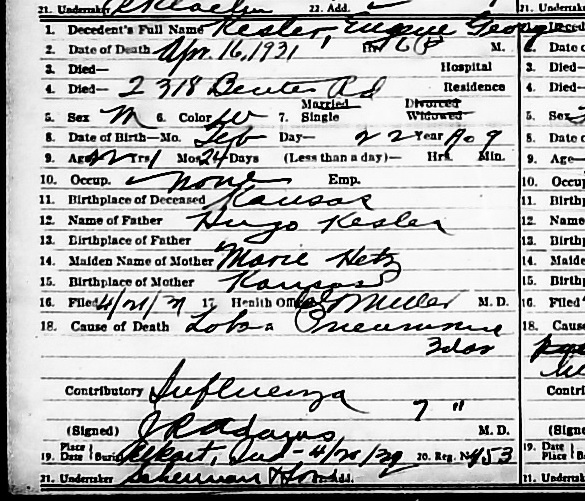 21. Undertaker 22. Add. 21. Undertaker
1. Decedent's Full Name Kesler, Eugene George
2. Date of Death Apr. 16, 1931 Hr. 6 P M. 2. Date
3. Died— Hospital 3. Died—
4. Died— 2318 Benter Rd Residence 4. Died—
Married Divorced
5. Sex M 6. Color W 7. Single Widowed 5. Sex
8. Date of Birth—Mo. Feb Day— 22 Year 8. Date
9. Age Yrs 1 Mos 24 Days (Less than a day)— Hrs. Min. 9. Age—
10. Occup. none Emp. 10. Occup
11. Birthplace of Deceased Kansas 11. Birthp
12. Name of Father Hugo Kesler 12. Name
13. Birthplace of Father 13. Birthp
14. Maiden Name of Mother Marie Hetz 14. Maide
15. Birthplace of Mother Kansas 15. Birthp
16. Filed 4/21/31 17. Health Officer Miller M. D. 16. Filed
18. Cause of Death Lobar Pneumonia 18. Cause
3 das
Contributory Influenza Contri
7 "
(Signed) J R Adams M. D. (Signe
19. Place Date Burial Elkart, Ind - 4/20/ 20. Reg. No. 453 19. Place Date
21. Undertaker Add. 21. Undert